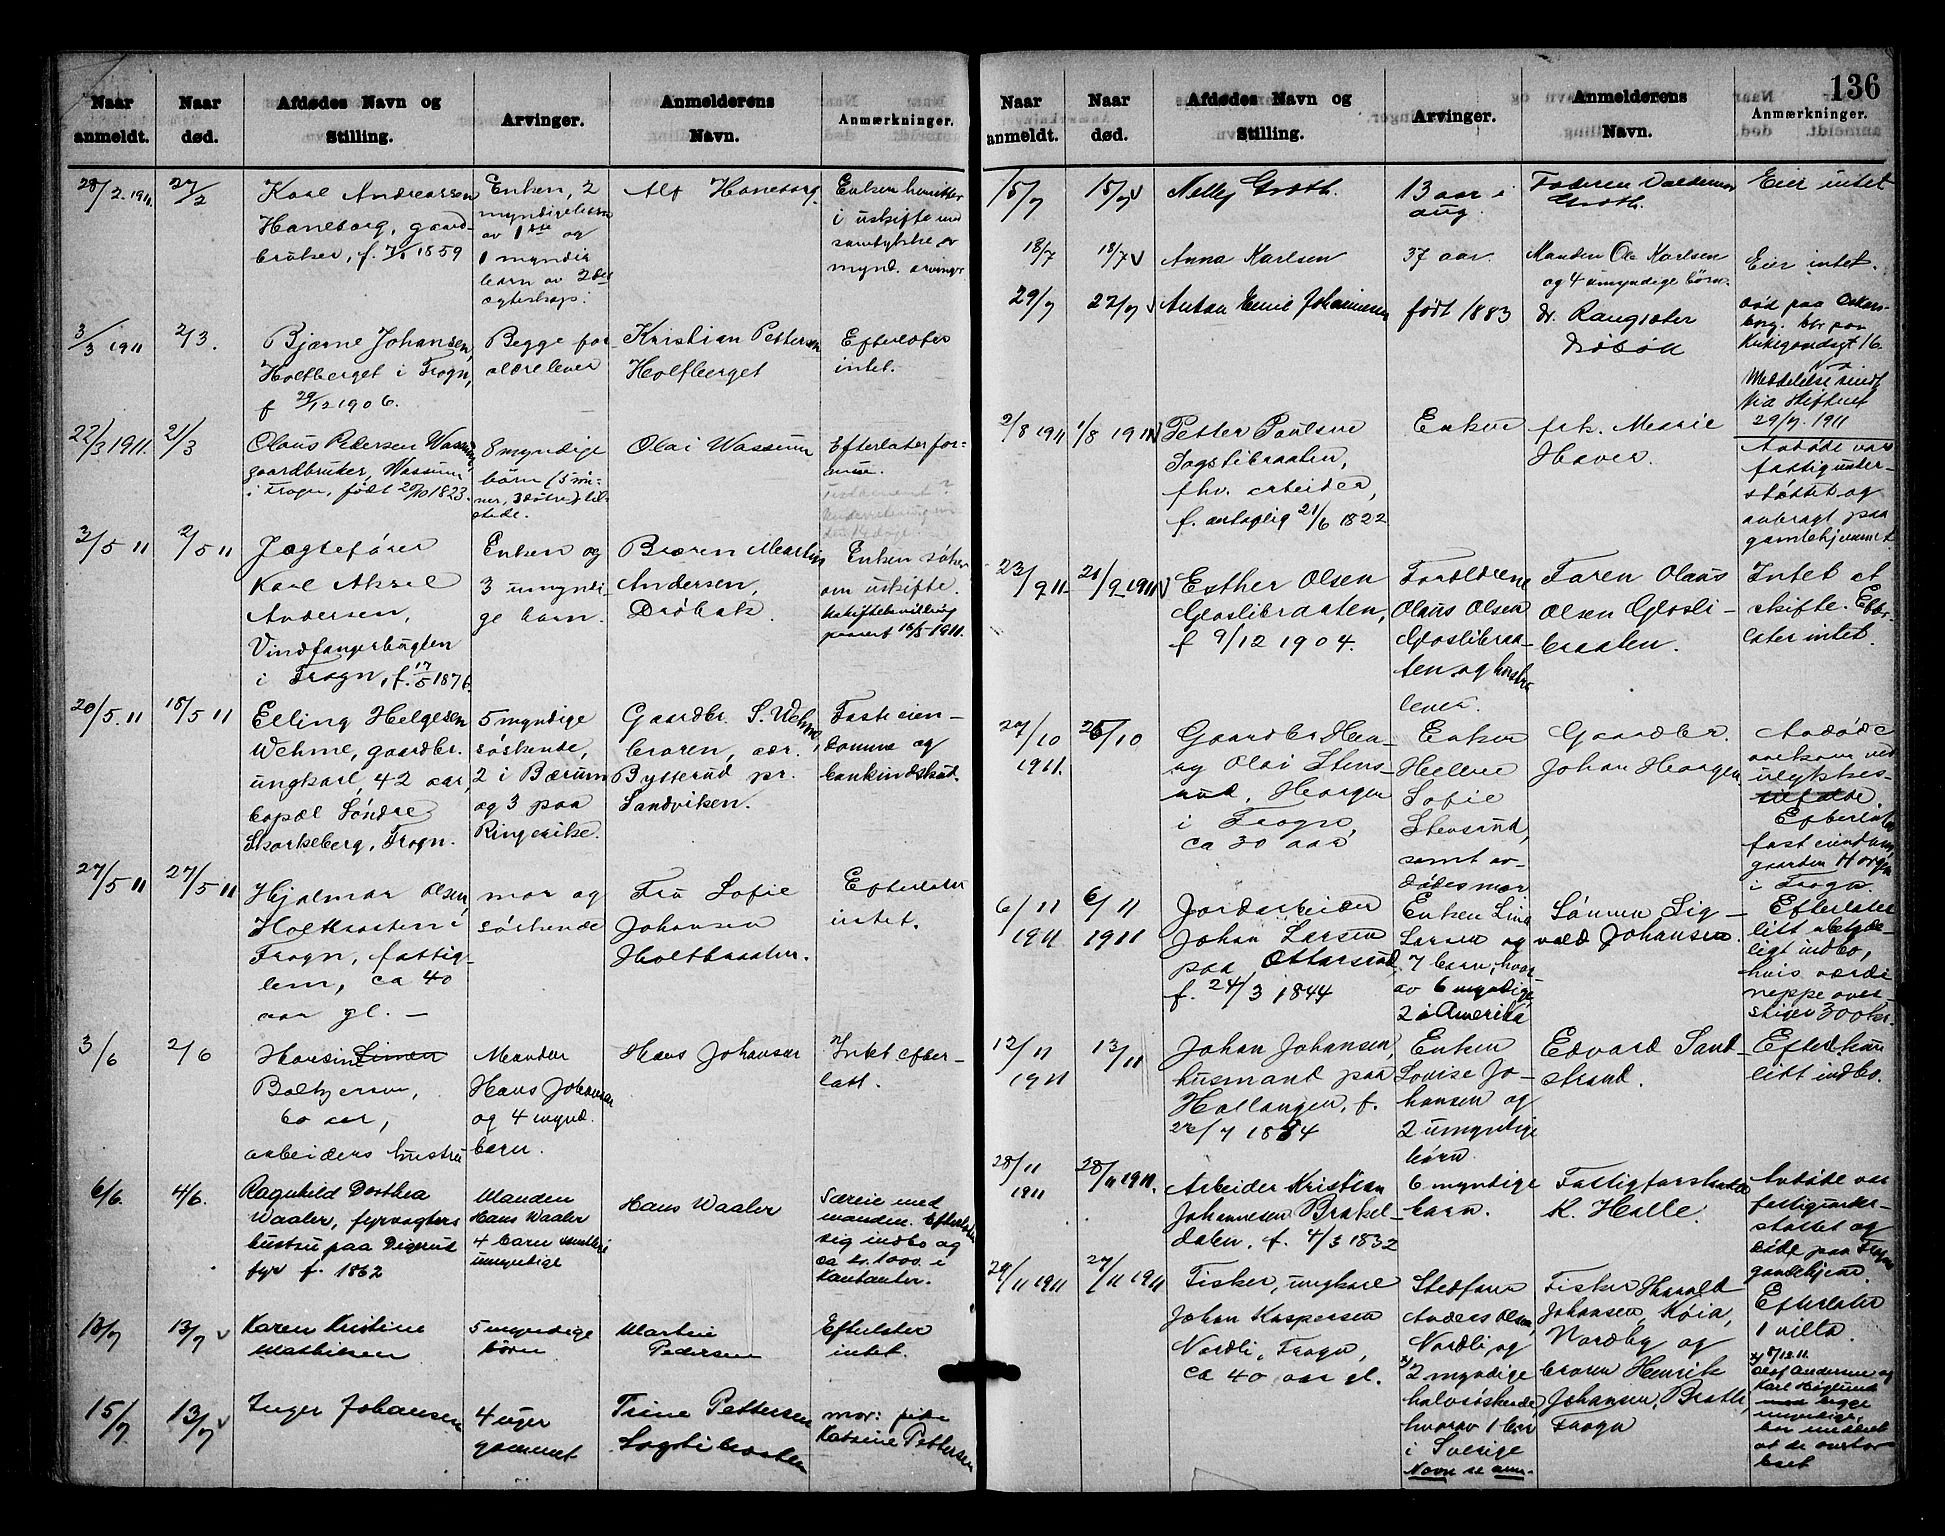 136
Naar anmeldt. Naar død. Afdødes Navn og Stilling. Arvinger. Anmelderens Navn. Anmærkninger.
28/2 1911 27/2
Karl Andreassen
Haneborg, gaard-
bruker, f. 1859
Enken, 2
myndige børn
av 1ste og
1 myndig
barn av 2det
egteskap.
Alf Haneborg.
Enken hensitter
i uskifte med
samtykke av
mynd. arvinger
3/3 1911 2/3.
Bjarne Johansen,
Holtberget i Frogn,
f 29/12 1906.
Begge for-
ældre lever
Kristian Pettersen
Holtberget
Efterlater
intet.
22/3 1911. 21/3
Olaus Pedersen Wassum,
gaardbruker, Wassum
i Frogn, født 1823.
8 myndige
børn (5 søn-
ner, 3 døtre) til-
stede.
Olai Wassum
Efterlater for-
mue.
3/5 11 2/5 11
Jægtefører
Karl Aksel
Andersen,
Vindfangerbugten
i Frogn, f. 17/5 1876.
Enken og
3 umyndi-
ge barn.
Broren Martin
Andersen,
Drøbak
Enken søker
om uskifte.
Uskiftebevilling
passert 16/5 1911.
20/5. 11 18/5 11
Elling Helgesen
Wehme, gaardbr.
ungkarl, 42 aar,
bopæl Søndre
Skorkeberg, Frogn.
5 myndige
søskende,
2 i Bærum
og 3 paa
Ringerike.
Gaardbr. S. Wehme,
broren, adr.
Bytterud pr.
Sandviken.
Fast eien-
domme og
bankindskud.
27/5 11 27/5 11
Hjalmar Olsen,
Holtbraaten i
Frogn, fattig-
lem, ca 40
aar gl. —
mor og
søskende
Fru Sofie
Johansen
Holtbraaten.
Efterlater
intet.
3/6 2/6
Hansine
Boltzersen,
60 aar,
arbeiders hustru
Manden
Hans Johansen
og 4 mynd.
barn.
Hans Johansen
Intet efter-
latt.
6/6. 4/6.
Ragnhild Dorthea
Waaler, fyrvogters
hustru paa Digerud
fyr f. 1862
Manden
Hans Waaler
4 barn
umyndige
Hans Waaler
Særeie med
manden. Efterlater
sig indbo og
ca kr. 1000. i
kontanter.
13/7 13/7 v
Karen Kristine
Mathisen
5 myndige
børn
Martin
Pedersen
Efterlater
intet.
15/7 13/7 v
Inger Johansen
4 uger
gammel
Trine Pettersen
Sogstibraaten
mor: pike
Katrine Pettersen
Naar anmeldt. Naar død. Afdødes Navn og Stilling. Arvinger. Anmelderens Navn. Anmærkninger.
15/7 15/7 v
Nelly Groth.
13 aar i
aug.
Faderen Valdemar
Groth.
Eier intet
18/7 18/7 v
Anna Karlsen
37 aar.
Manden Ole Karlsen
og 4 umyndige børn.
Eier intet.
29/7 27/7 v
Anton Emil Johannesen
født 1883
dr. Rangsæter
Drøbak
død paa Oskars-
borg. bor paa
Kirkegaardsgt 16.
Meddelelse sendt
via skifteret
29/7. 1911
2/8 1911 1/8 1911 v
Petter Paulsen
Sogstibraaten,
fhv. arbeider,
f. antagelig 21/6 1822
Enken
frk. Marie
Haver.
Avdøde var
fattigunder-
støttet og
anbragt paa
gamlehjemmet.
23/9 11. 21/9 1911 v
Esther Olsen
Gloslibraaten,
f 9/12 1904.
Forældrene
Olaus Olsen
Gloslibraa-
ten og hustru
lever.
Faren Olaus
Olsen Glosli-
braaten.
Intet at
skifte. Efter-
later intet.
27/10 1911. 26/10
Gaardbr Hen-
Olai Stens-
rud, Horgen
i Frogn,
ca 30 aar
Enken
Hellene
Sofie
Stensrud,
samt av-
dødes mor
Gaardbr.
Johan Horgen
Avdøde
omkom ved
ulykkes-
tilfælde.
Efterlater
fast eiendom
gaarden Horgen
i Frogn.
6/11 1911 6/11 1911
Jordarbeider
Johan Larsen
paa Ottarsrud,
f. 24/3 1844
Enken Lina
Larsen og
7 barn, hvor-
av 6 myndige
2 i Amerika
Sønnen Sig-
vald Johansen.
Efterlater
litt ubetyde-
ligt indbo,
hvis værdi
neppe over-
stiger 300 kr.
12/11 1911 13/11
Johan Johansen,
husmand paa
Hallangen, f.
22/7 1854
Enken
Lovise Jo-
hansen og
2 umyndige
børn.
Edvard Sand-
strand.
Efterl. kun
litt indbo.
28/11 1911 28/11 1911.
Arbeider Kristian
Johannesen Brakel-
dalen. f. 4/3 1832
6 myndige
barn.
Fattigforstander
K. Holle.
Avdøde var
fattigunder-
støttet og
døde paa Frogn
gamlehjem.
29/11 1911 27/11 1911
Fisker, ungkarl
Johan Kaspersen
Nordli, Frogn,
ca 40 aar gl.
Stedfaren
Anders Olsen,
Nordli, og
x) 2 myndige
halvsøskende,
hvorav 1 bor
i Sverige
Navn se anm.
Fisker Harald
Johansen, Køia,
Nordby og
broren Henrik
Johansen, Bratli,
Frogn
Efterlater
1 villa.
x) 7/12 11.
Olof Andersen og
Karl Høglund
begge
myndige,
har meddelt
at de overtar
boet